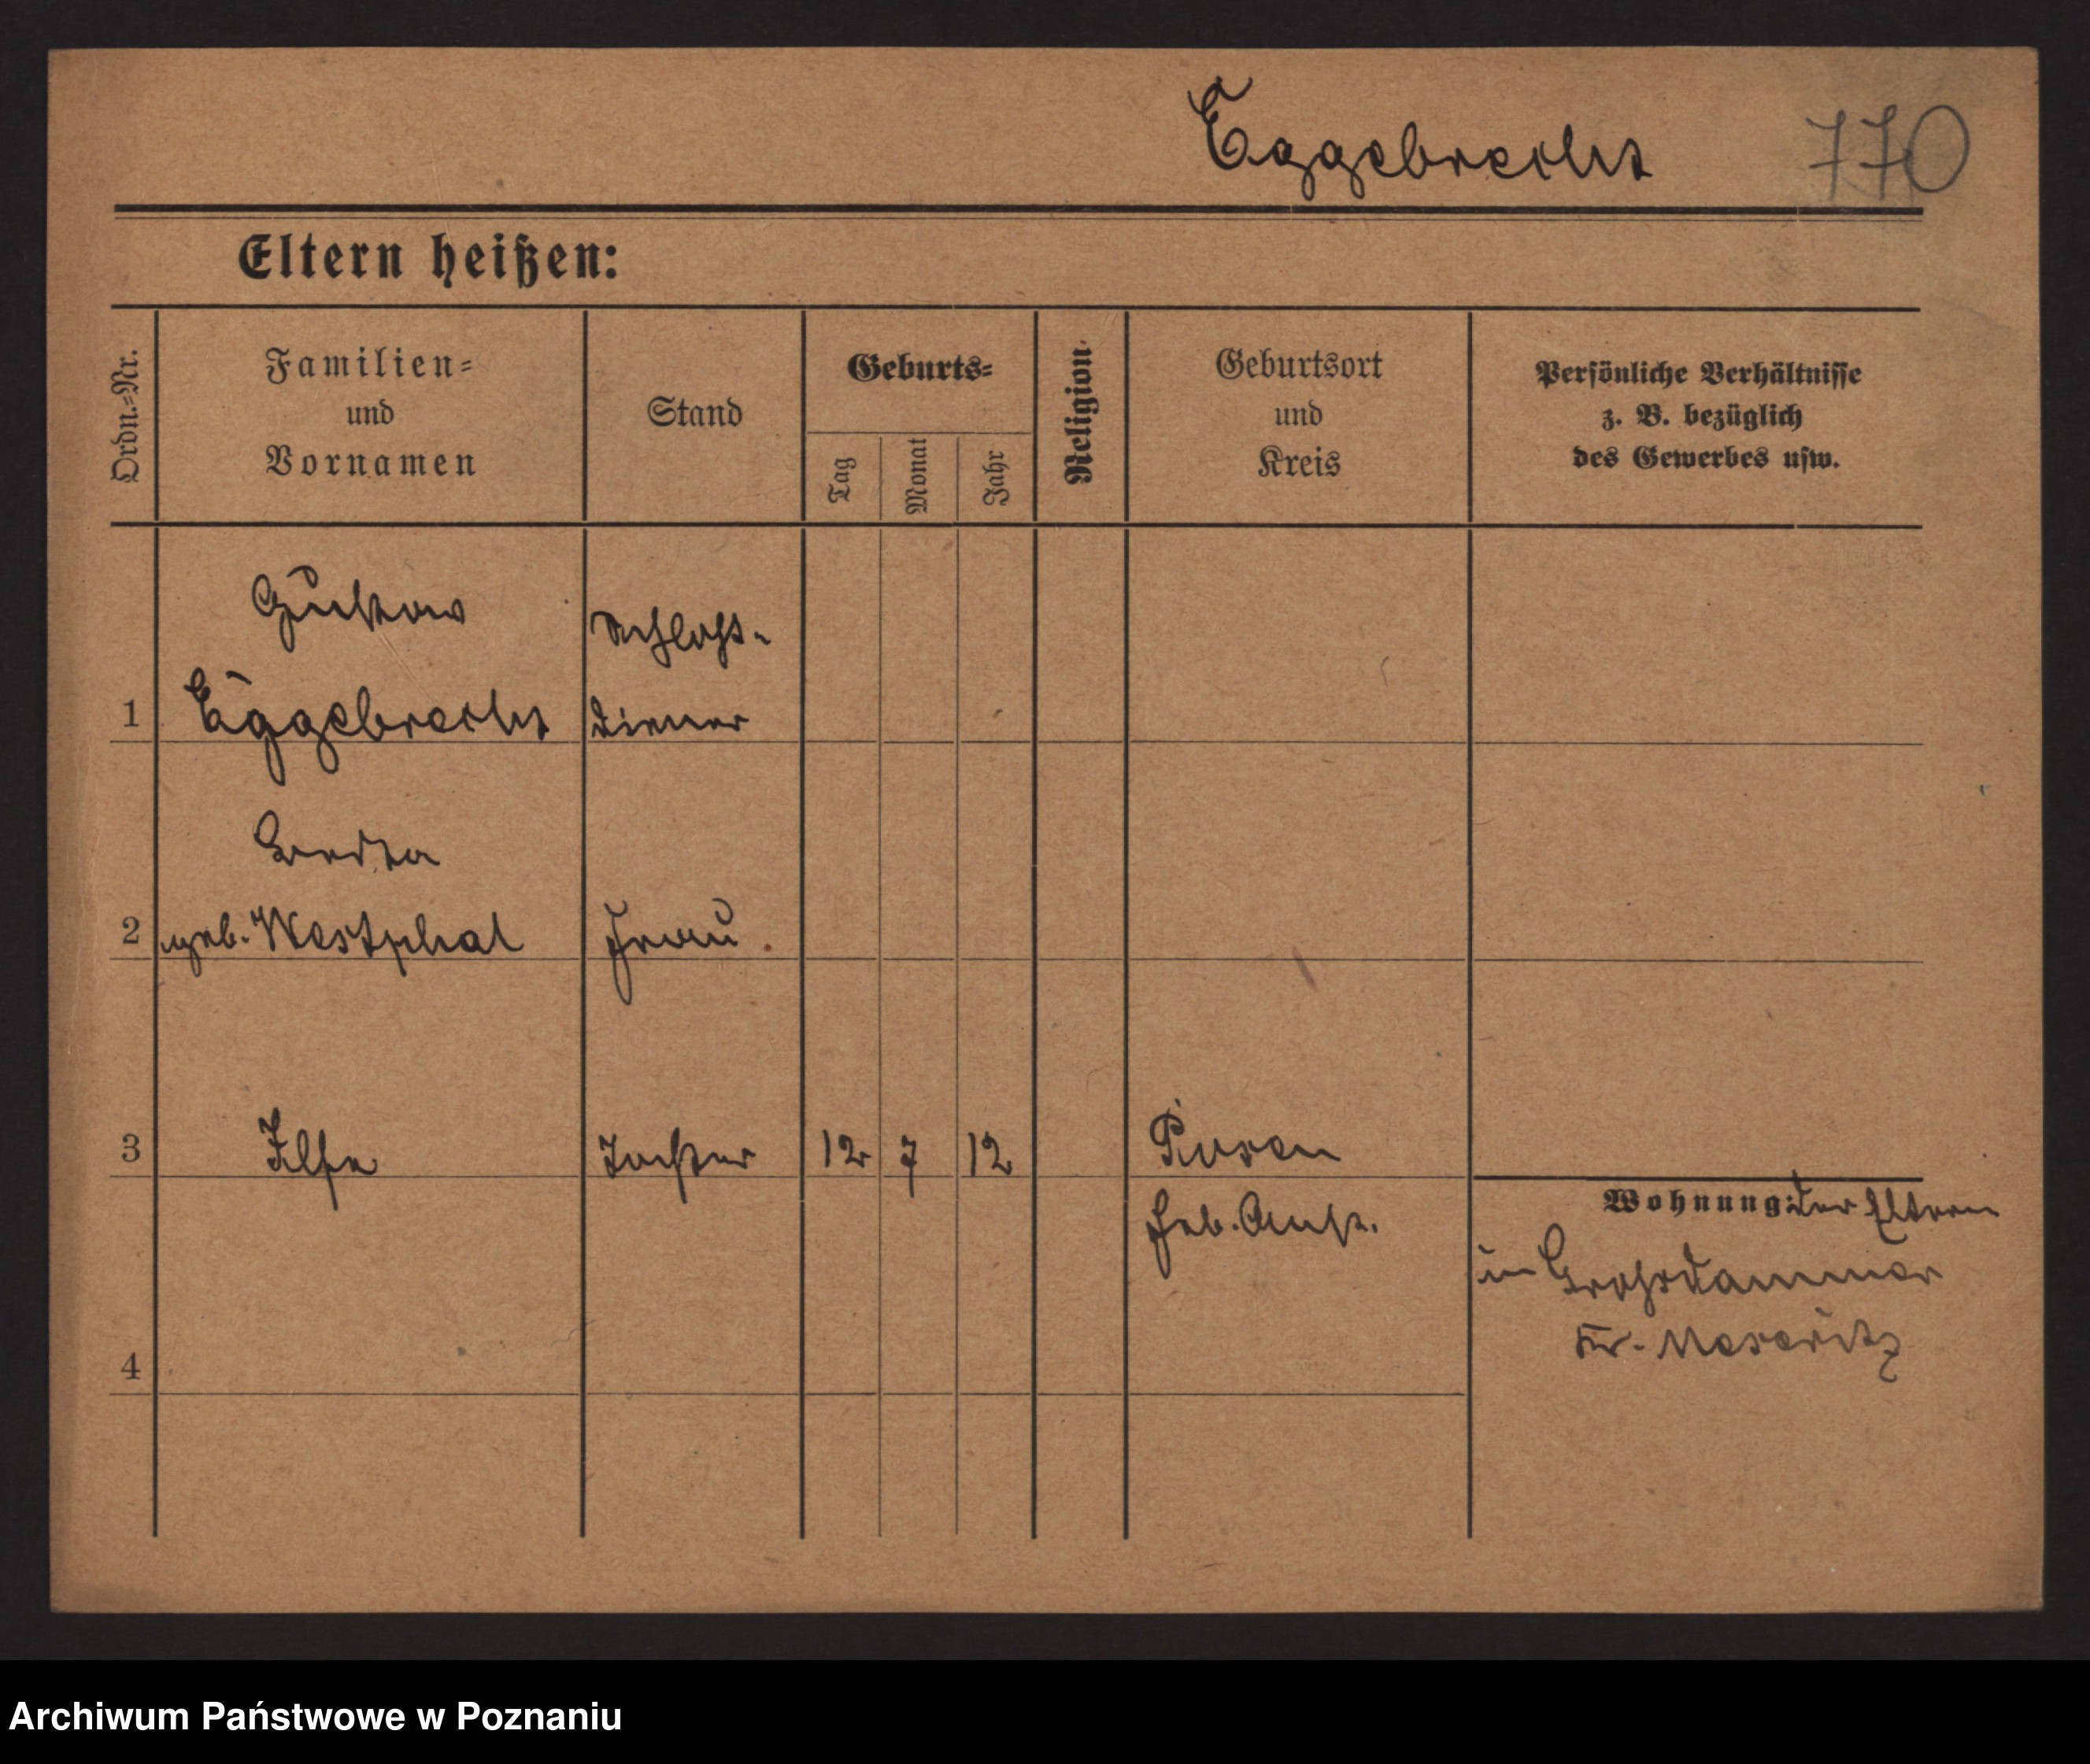 Eggebrecht 770
Eltern heißen:
Ordn.-Nr.
Familien-
und
Vornamen
Stand
Geburts-
Tag
Monat
Jahr
Religion
Geburtsort
und
Kreis
Persönliche Verhältnisse
z. B. bezüglich
des Gewerbes usw.
Gustav
Schloss-
1 Eggebrecht diener
2 geb. Westphal Frau
3 Ilse Tochter 12 7 12 Posen
Wohnung: der Eltern
Geb. Anst.
in Grossdammer
Kr. Meseritz
4
Archiwum Państwowe w Poznaniu